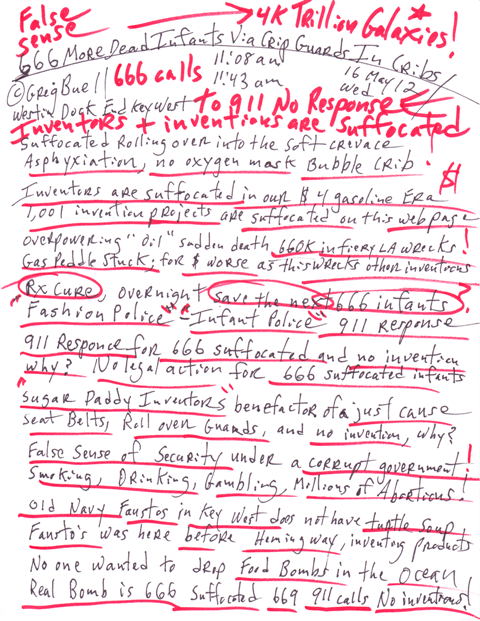 False → 4K Trillion Galaxies! *
sense
666 More Dead Infants Via Crip Guards In Cribs
© Greg Buell 666 calls 11:08 am 16 May 12
11:43 am Wed
Westin Dock End Key West To 911 No Response
Inventors + inventions are suffocated
Suffocated Rolling over into the soft crevace
Asphyxiation, no oxygen mask Bubble Crib . $!
Inventors are suffocated in our $4 gasoline Era
1,001 invention projects are suffocated on this web page
overpowering "Oil" sudden death 660K in fiery LA wrecks!
Gas Peddle Stuck; for $ worse as this wrecks other inventions
Rx Cure, overnight save the next 666 infants?
"Fashion Police" = "Infant Police" 911 Response
911 Responce for 666 suffocated and no invention
why? No legal action for 666 suffocated infants
"Sugar Daddy Inventors" benefactor of a just cause
Seat Belts, Roll over Guards, and no invention, why?
False Sense of Security under a corrupt government!
Smoking, Drinking, Gambling, Millions of Abortions!
Old Navy Faustos in Key West does not have turtle soup
Fausto's was here before Hemingway, inventing products
No one wanted to drop Food Bombs in the Ocean
Real Bomb is 666 Suffocated 669 911 calls No inventions!